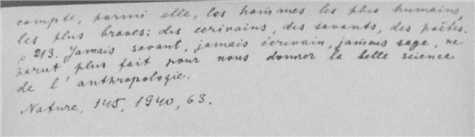 compte, parmi elle, les hommes les plus humains
les plus braves: des écrivains, des savants, des poètes.
p 213. Jamais savant, jamais écrivain, jamais sage, ne
parut plus fait pour nous donner la belle science
de l'anthropologie.
Nature, 145, 1940, 63.